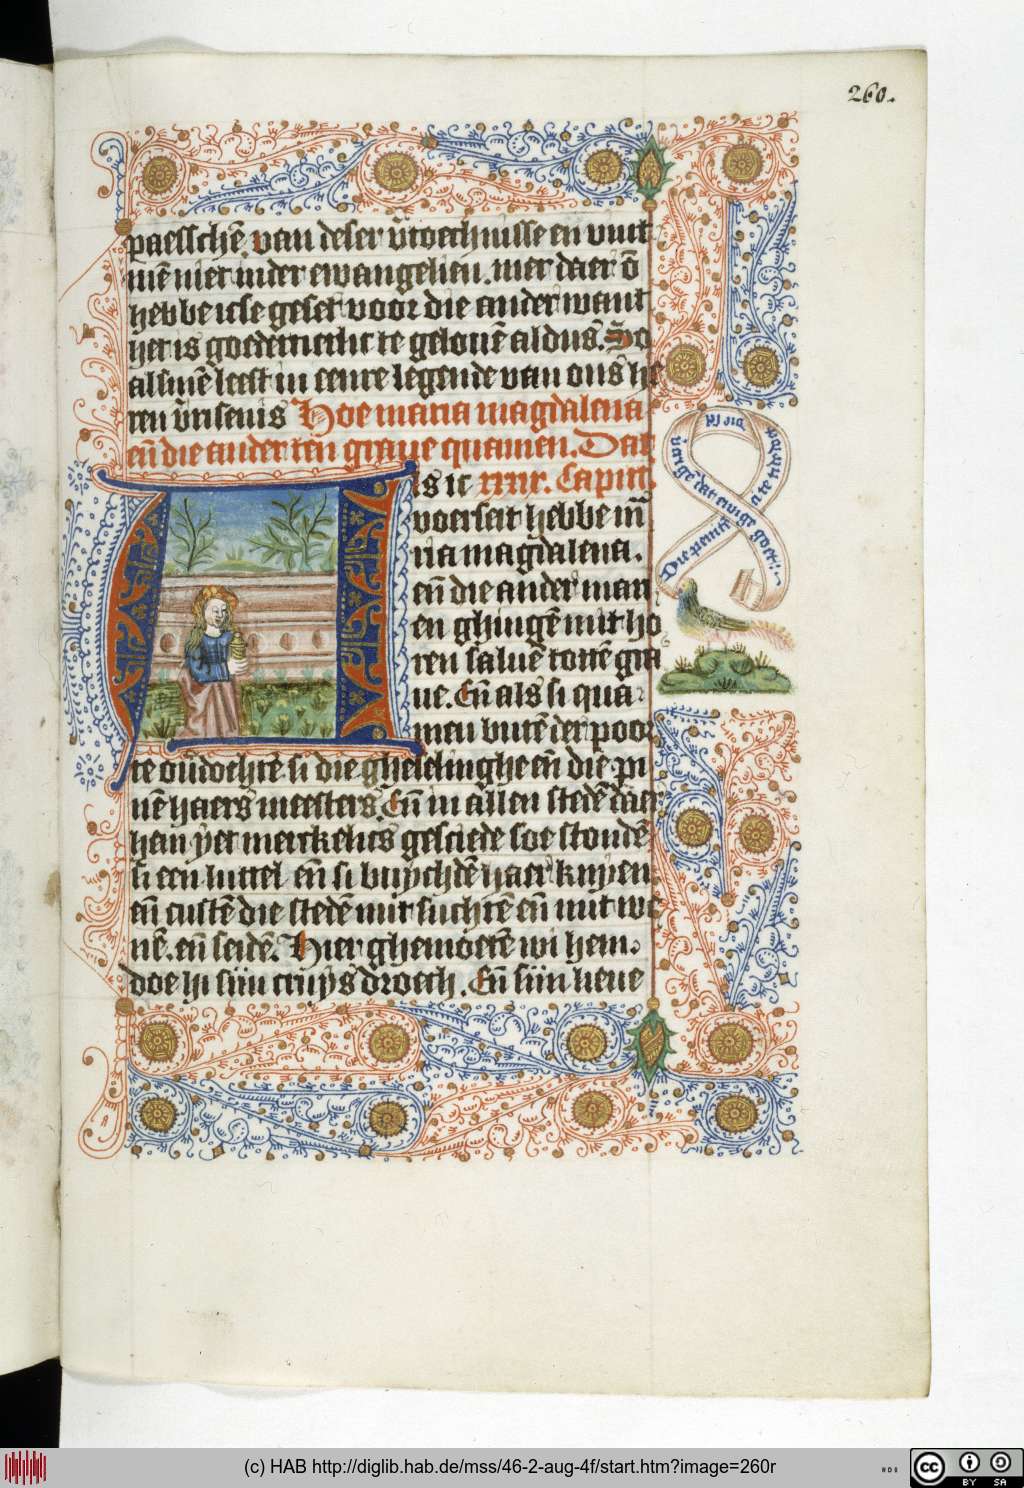 260.
paesschē. van deser v̄toechnisse en vint
mē niet inder ewangelien. mer daer ō
hebbe icse geset voor die ander want
het is goedertierlic te gelouē aldus. So
alsmē leest in eenre legende van ons he
ren v̄risenis Hoe maria magdalena
eñ die ander ten graue quamen. Dat
is ic xxxix. Capitt.
voerseit hebbe m̄
ria magdalena.
eñ die ander mari
en ghingē mit ho
ren saluē totten gra
ue. Eñ als si qua
men butē der poor
te oūdochtē si die gheselinghe eñ die pi
nē haers meesters. Eñ in allen stedē daer
hem yet merckelics gesciede soe stondē
si een luttel eñ si buychdē haer knyen
eñ custē die stedē mit suchtē eñ mit we
nē. eñ seidē. Hier ghemoetē wi hem.
doe hi sijn cruys droech. Eñ sijn lieue
(c) HAB http://diglib.hab.de/mss/46-2-aug-4f/start.htm?image=260r
HAB
cc BY SA